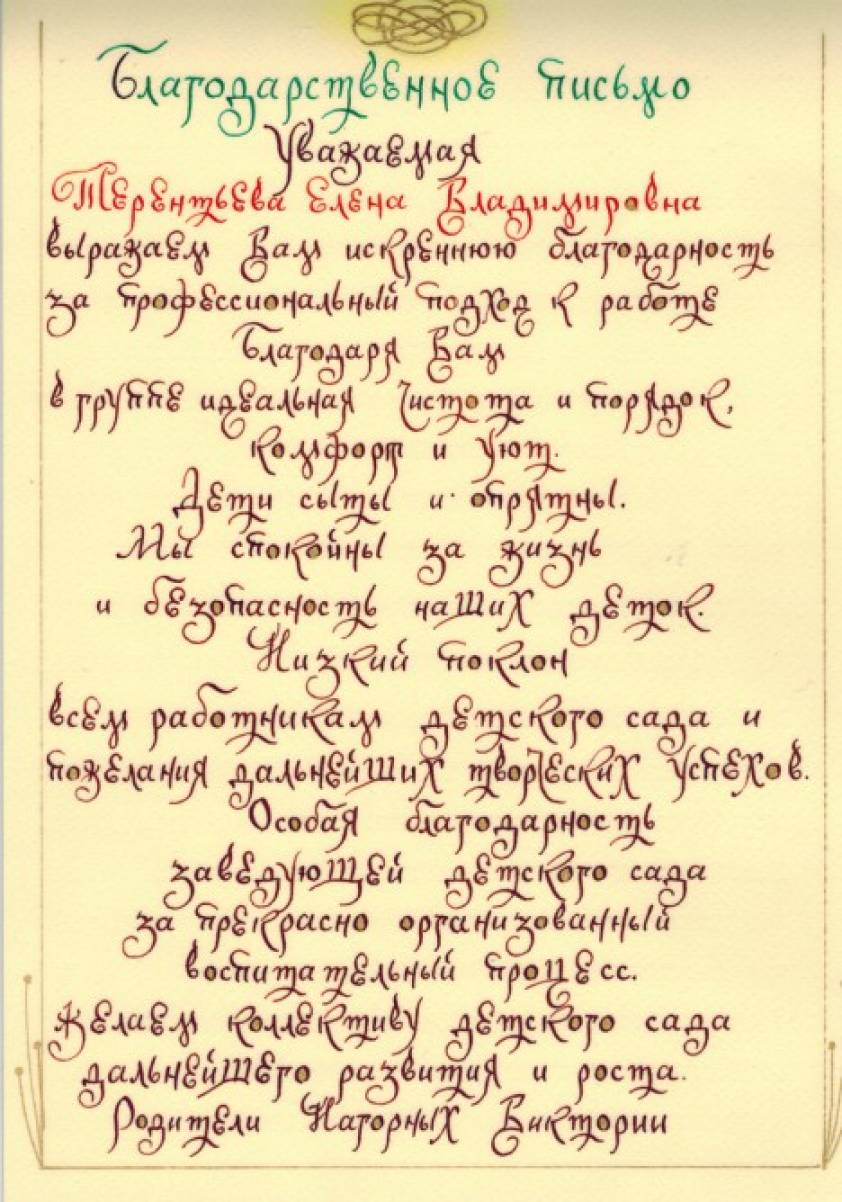 Благодарственное письмо
Уважаемая
Терентьева Елена Владимировна
выражаем Вам искреннюю благодарность
за профессиональный подход к работе
Благодаря Вам
в группе идеальная чистота и порядок,
комфорт и уют.
Дети сыты и опрятны.
Мы спокойны за жизнь
и безопасность наших деток.
Низкий поклон
всем работникам детского сада и
пожелания дальнейших творческих успехов.
Особая благодарность
заведующей детского сада
за прекрасно организованный
воспитательный процесс.
желаем коллективу детского сада
дальнейшего развития и роста.
Родители Нагорных Виктории